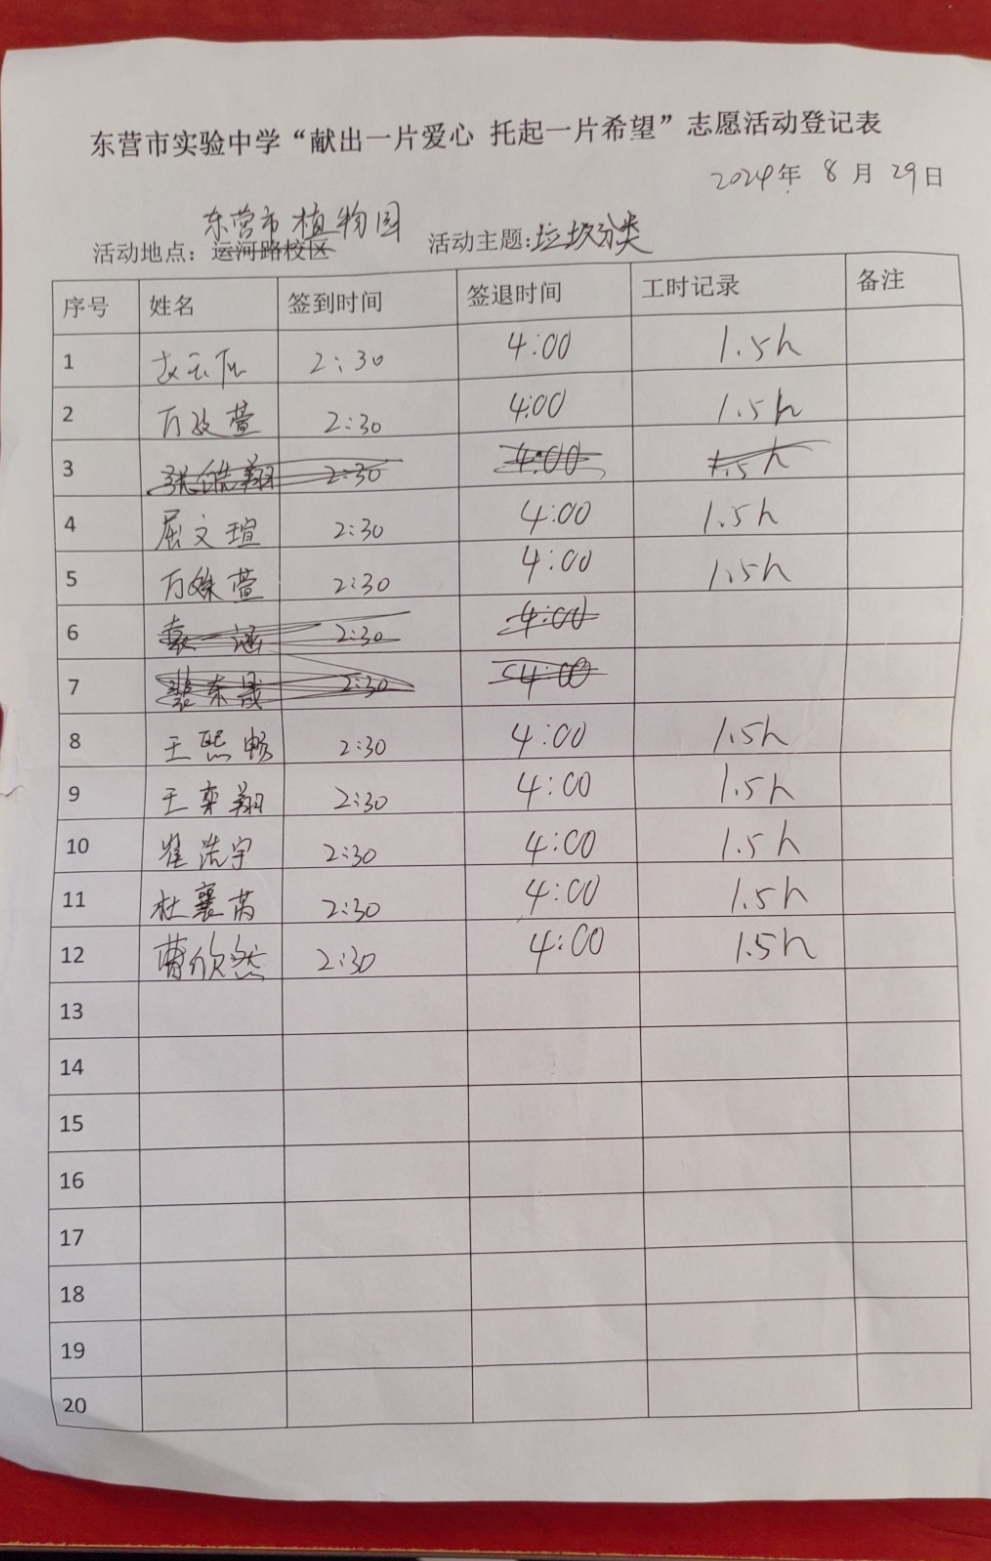 东营市实验中学“献出一片爱心 托起一片希望”志愿活动登记表
2024年 8月29日
东营市植物园
活动地点：运河路校区 活动主题:垃圾分类
序号 姓名 签到时间 签退时间 工时记录 备注
1 2:30 4:00 1.5h
2 万政萱 2:30 4:00 1.5h
3 张皓翔 2:30 4:00 1.5h
4 屈文瑄 2:30 4:00 1.5h
5 万姝萱 2:30 4:00 1.5h
6 袁一涵 2:30 4:00
7 裴东晟 2:30 4:00
8 王熙畅 2:30 4:00 1.5h
9 王奕翔 2:30 4:00 1.5h
10 崔浩宇 2:30 4:00 1.5h
11 杜襄芮 2:30 4:00 1.5h
12 曹欣然 2:30 4:00 1.5h
13
14
15
16
17
18
19
20